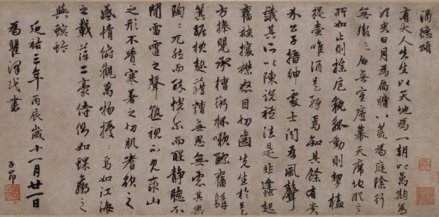 酒德頌
有大人先生以天地為一朝萬期為
須臾日月為扃牖八荒為庭除行
無轍跡居無室廬幕天席地縱意
所如止則操卮執觚動則挈榼
提壺唯酒是務焉知其餘有貴
介公子搢紳處士聞吾風聲
議其所以陳說禮法是非蜂起
奮袂攘襟怒目切齒先生於是
方捧甖承槽銜杯漱醪奮髯
箕踞枕麴藉糟無思無慮其樂
陶陶兀然而醉怳爾而醒靜聽不
聞雷霆之聲熟視不見泰山
之形不覺寒暑之切肌嗜欲之
感情俯觀萬物擾擾焉如江海
之載萍二豪侍側焉如蜾蠃之
與螟蛉
延祐三年丙辰歲十一月廿一日
為瞿澤民書
子昂